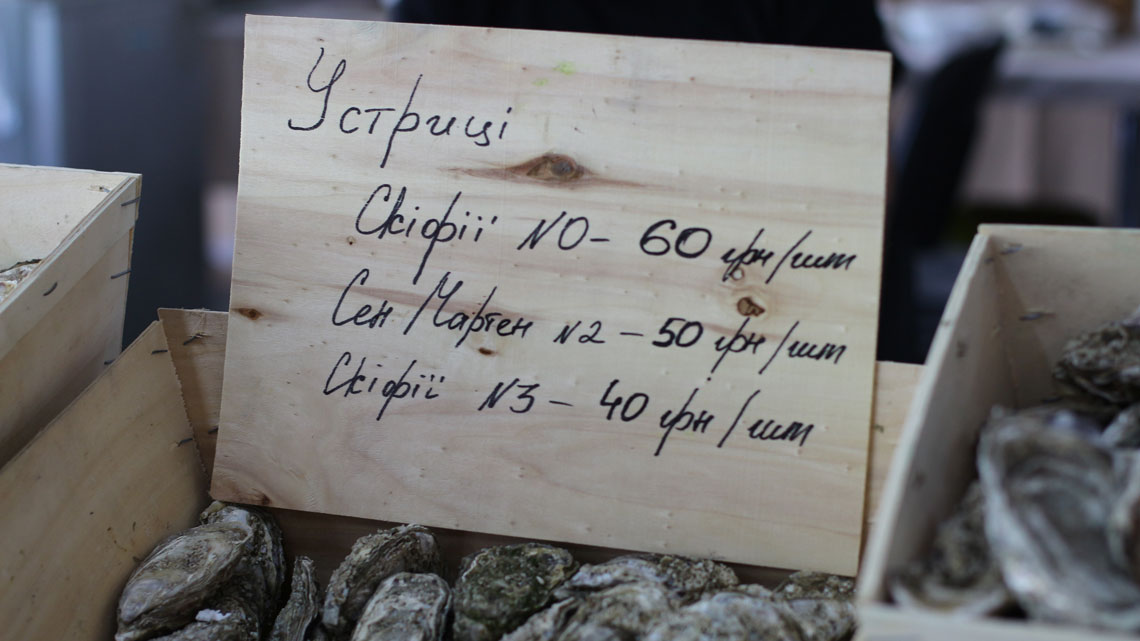 Устриці
Скіфії N0 - 60 грн/шт
Сен Мартен N2 - 50 грн/шт
Скіфії N3 - 40 грн/шт